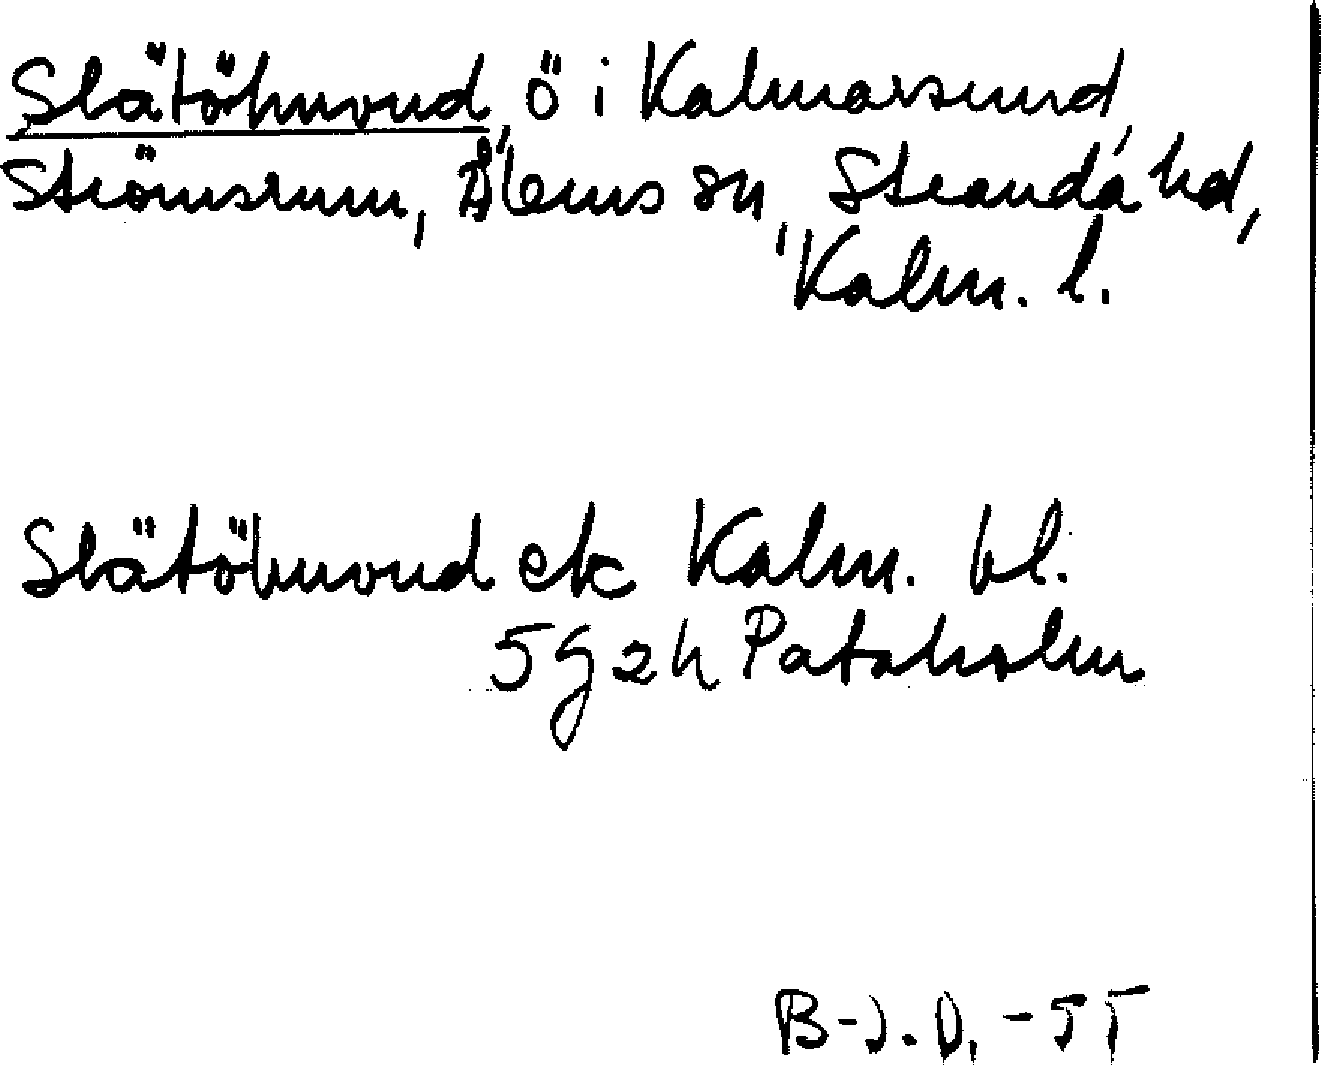 Slätöhmoud, ö i Kalmarsund,
Strömsrum, Ålems sn, Stranda hd,
Kalm. l.
Slätöhmoud ek Kalm. bl.
5g2h Pataholm
B-J.D. -55